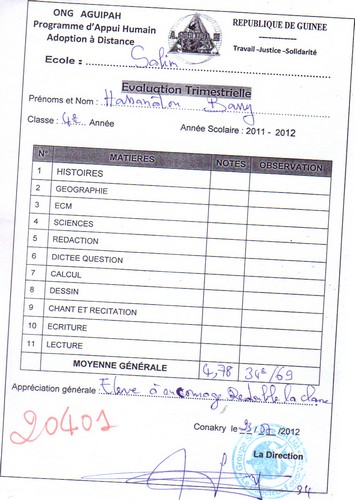 ONG AGUIPAH
Programme d'Appui Humain
Adoption à Distance
REPUBLIQUE DE GUINEE
Travail -Justice -Solidarité
Ecole : Salin
Evaluation Trimestrielle
Prénoms et Nom : Hassanatou Barry
Classe : 4e Année
Année Scolaire : 2011 - 2012
N° MATIERES NOTES OBSERVATION
1 HISTOIRES
2 GEOGRAPHIE
3 ECM
4 SCIENCES
5 REDACTION
6 DICTEE QUESTION
7 CALCUL
8 DESSIN
9 CHANT ET RECITATION
10 ECRITURE
11 LECTURE
MOYENNE GÉNÉRALE 4,78 34e/69
Appréciation générale : Elève à encourage Redouble la classe
20401
Conakry le /2012
La Direction